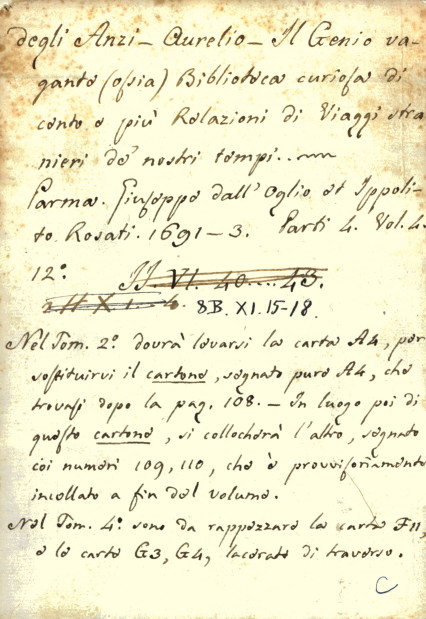 degli Anzi – Aurelio – Il Genio va-
gante (ossia) Biblioteca curiosa di
cento e più Relazioni di Viaggi stra
nieri de' nostri tempi..
Parma. Giuseppe dall'Oglio et Ippoli-
to Rosati. 1691–3. Parti 4. Vol. 4.
12.° JJ. VI. 40....43.
II X I . 4. 8B. XI. 15-18.
Nel Tom. 2.° dovrà levarsi la carta A4, per
sostituirvi il cartone, segnato pure A4, che
trovasi dopo la pag. 108. – In luogo poi di
questo cartone, si collocherà l'altro, segnato
coi numeri 109, 110, che è provvisoriamente
incollato a fin del volume.
Nel Tom. 4.° sono da rappezzare la carta F11,
e le carte G3, G4, lacerate di traverso.
C